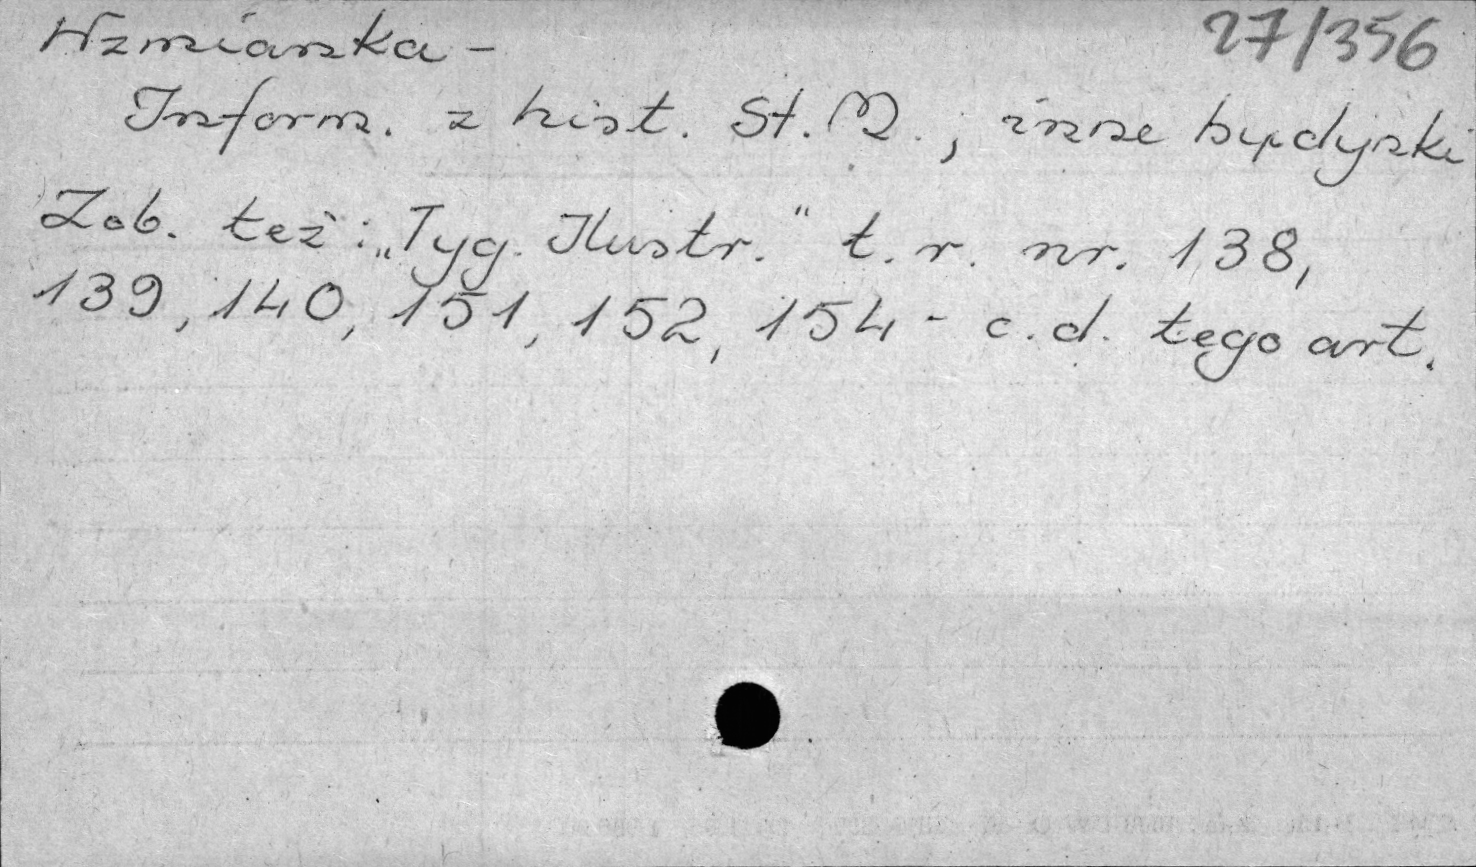 27/356
Wzmianka -
Inform. z hist. St. M., inne budynki
Zob. też: „Tyg. Ilustr." t. r. nr. 138,
139, 140, 151, 152, 154 - c.d. tego art.